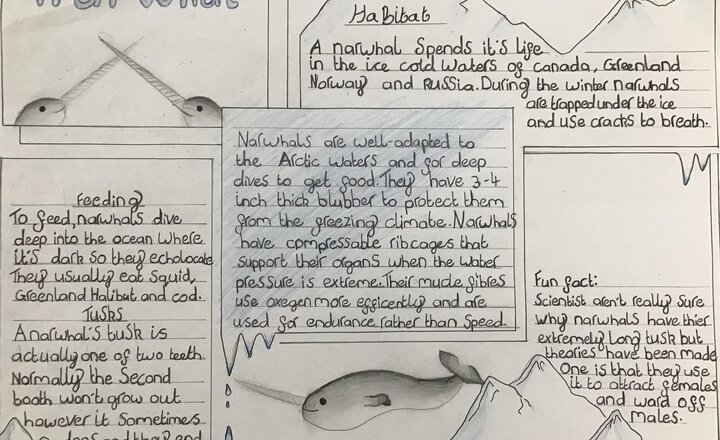 Narwhal
Habitat
A narwhal spends it's life
in the ice cold waters of Canada, Greenland
Norway and Russia. During the winter narwhals
are trapped under the ice
and use cracks to breath.
Narwhals are well-adapted to
the Arctic waters and for deep
dives to get food. They have 3-4
inch thick blubber to protect them
from the freezing climate. Narwhals
have compressable ribcages that
support their organs when the water
pressure is extreme. Their mucle fibres
use oxegen more efficently and are
used for endurance rather than speed.
Feeding
To feed, narwhals dive
deep into the ocean where
it's dark so they echolocate
They usually eat squid,
Greenland Halibut and cod.
Tusks
A narwhal's tusk is
actually one of two teeth.
Normally the second
tooth won't grow out
however it sometimes
does and they end
Fun fact:
Scientist aren't really sure
why narwhals have thier
extremely long tusk but
theories have been made
One is that they use
it to attract females
and ward off
males.